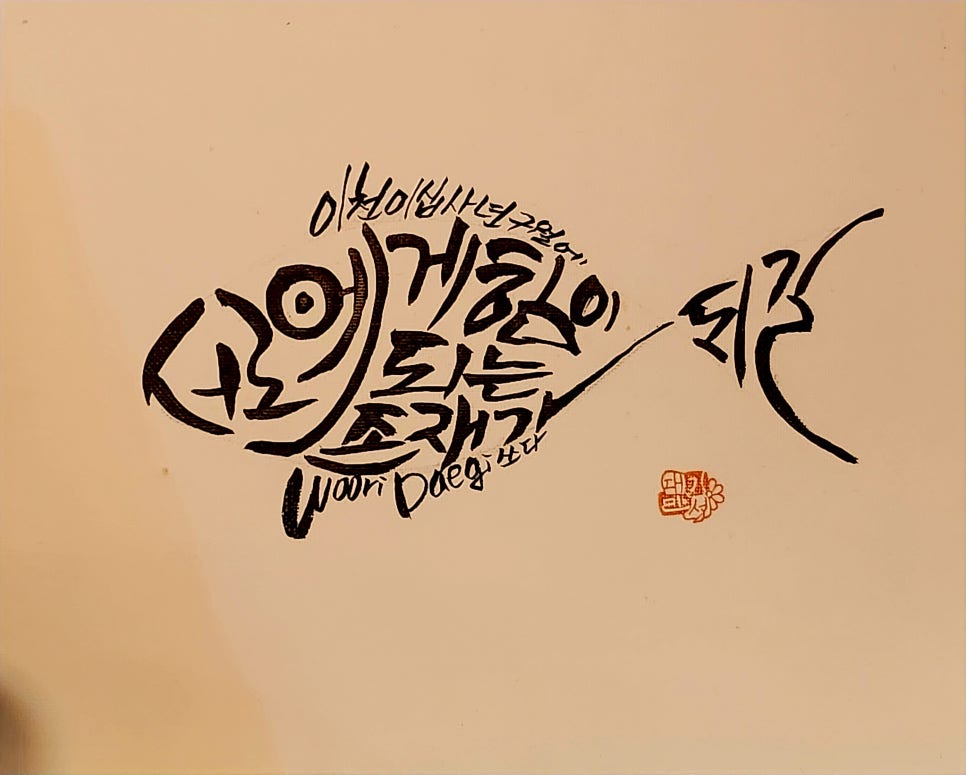 이천이십사년구월에
서로에게 힘이
되는
존재가
되길
Woori Daegi 쓰다